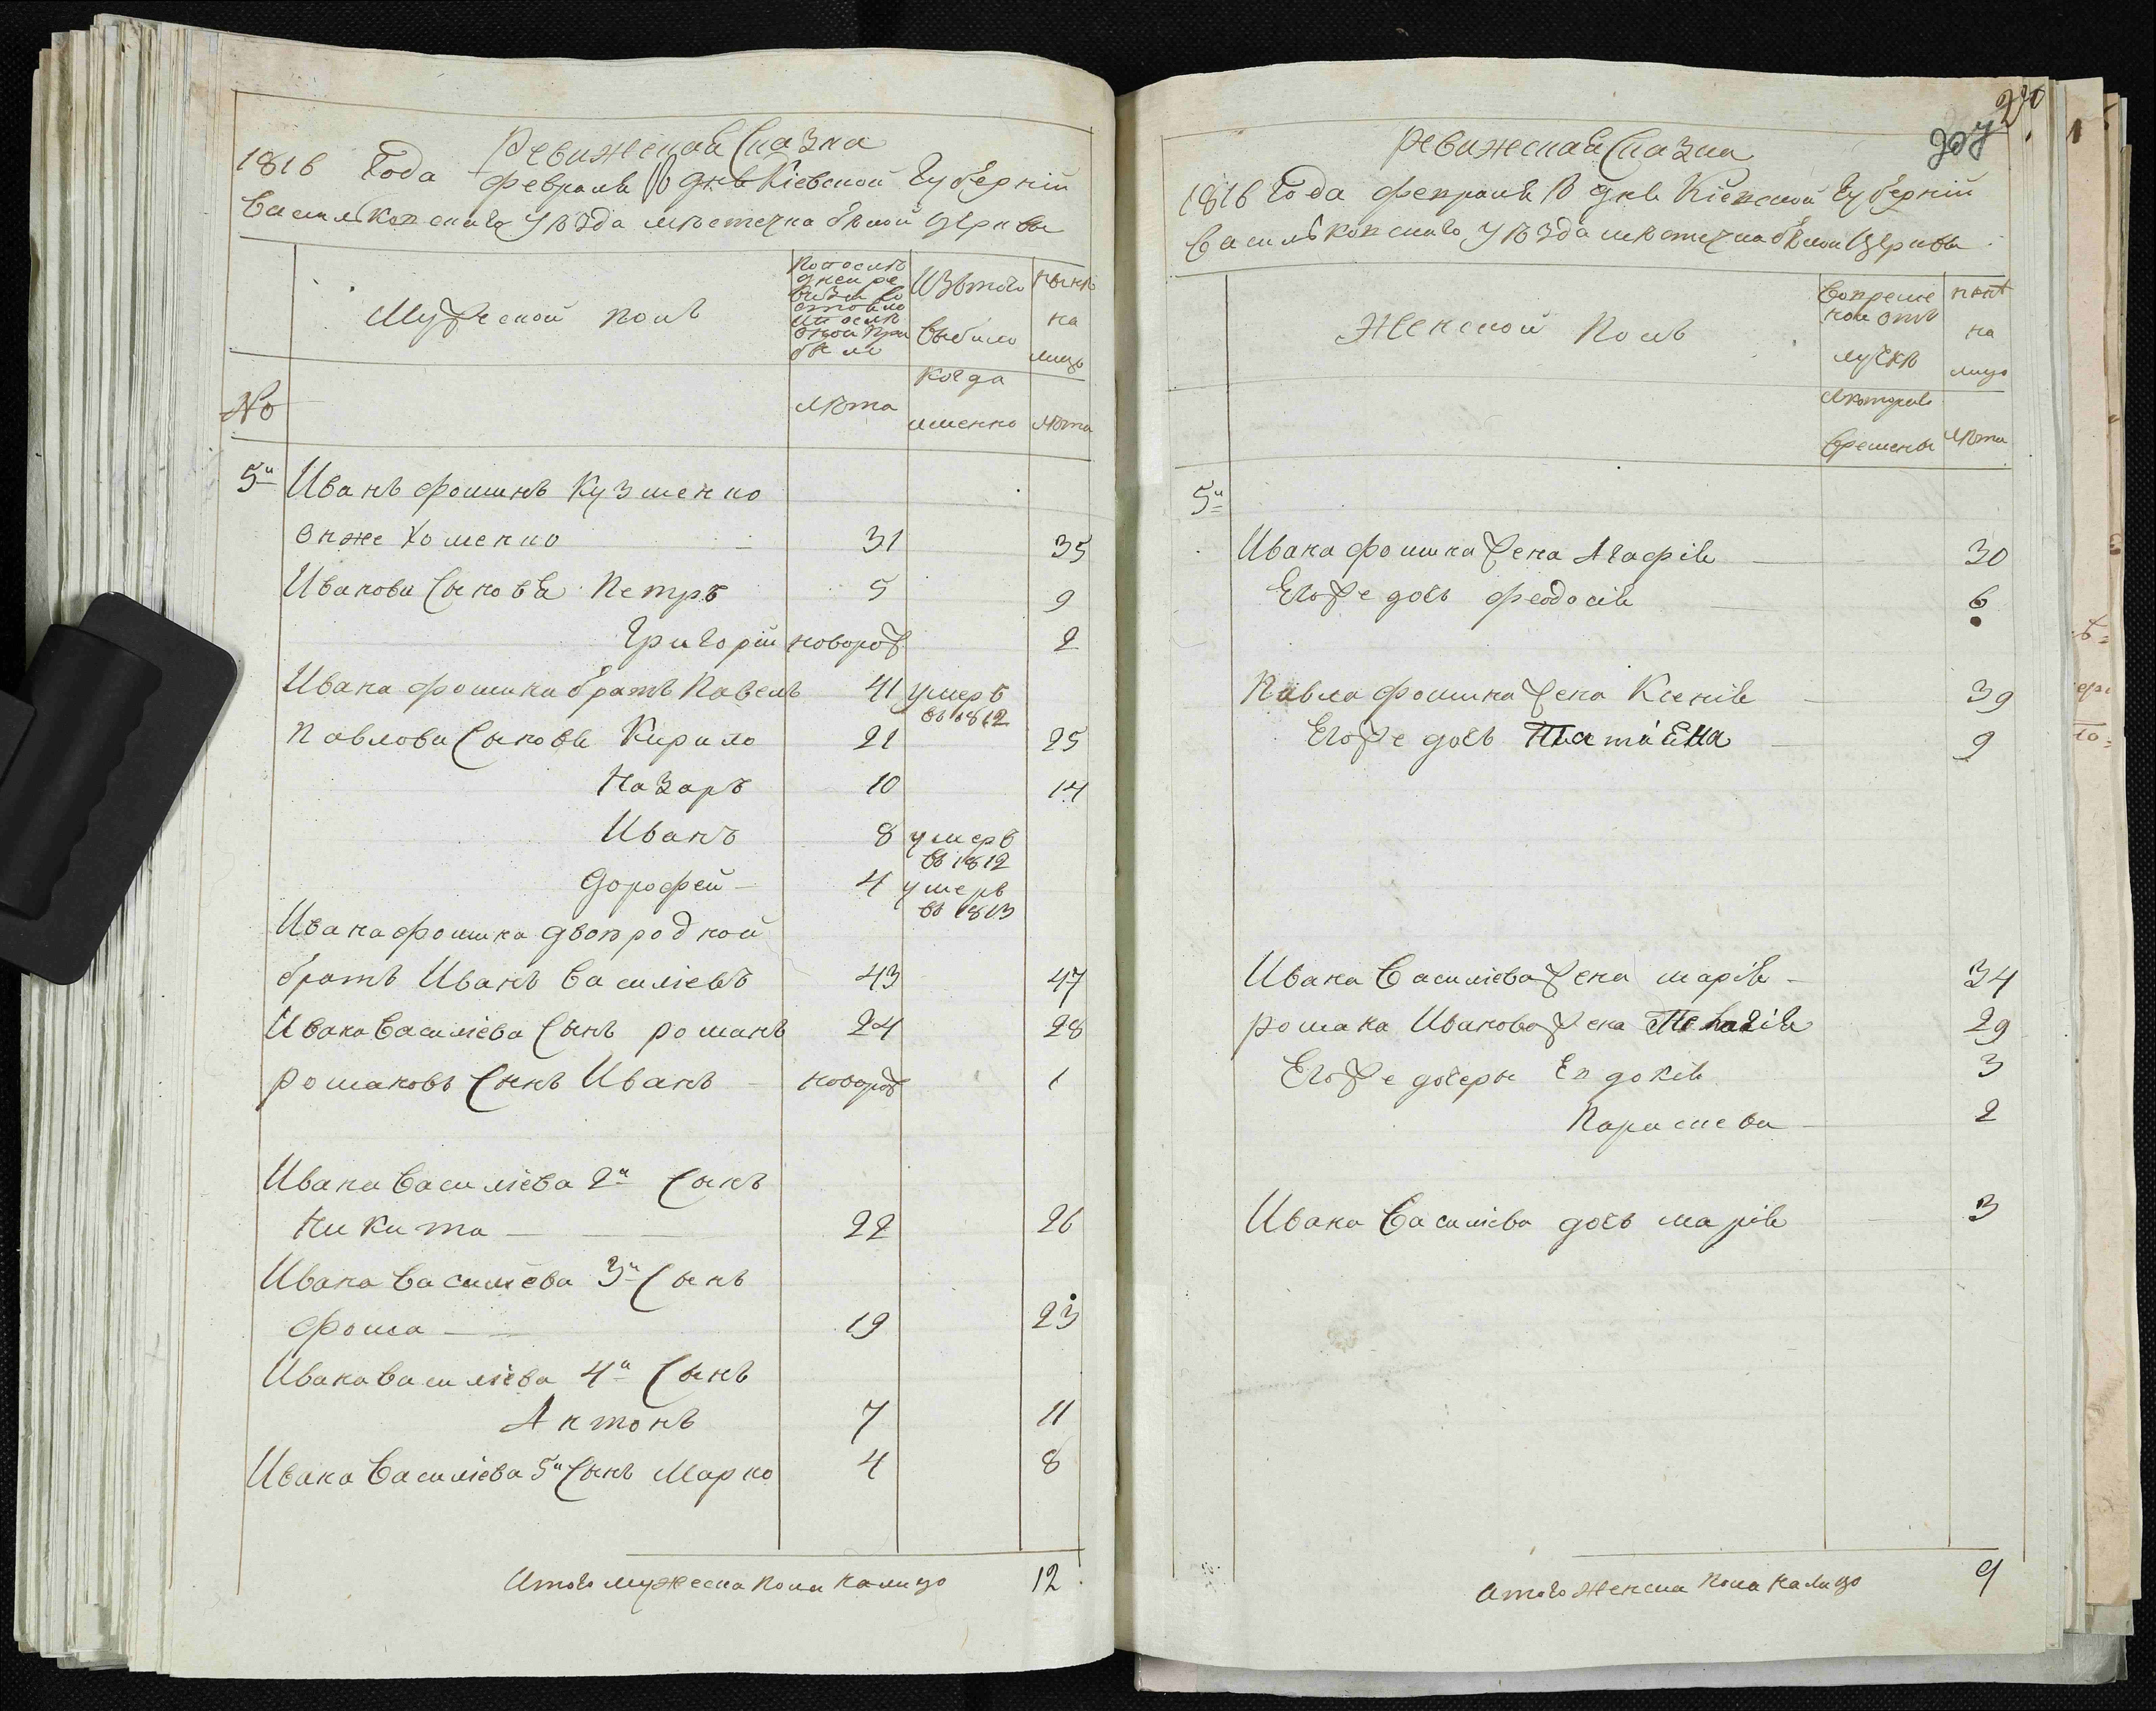 Ревижская Сказка
1816 Года февраля 10 дня Кіевской Губерніи
Василковскаго Уѣзда мѣстечка бѣлой Церкви
Мужеской полъ
По послѣ
дней ре
визіи со
стояло
и послѣ
оной при
было
Изътого
выбило
Нынѣ
на
лицо
№
лѣта
когда
именно
лѣта
5й Иванъ фоминъ Кузменко
онже Хоменко 31 35
Иванови Сыновья Петръ 5 9
Григорій новорож 2
Ивана фомина братъ Павелъ 41 умеръ
въ 1812
Павлови Сыновья Кирило 21 25
Назаръ 10 14
Иванъ 8 умеръ
въ 1812
Дорофей 4 умеръ
въ 1813
Ивана фомина двопродной
братъ Иванъ Василіевъ 43 47
Ивана Василіева Сынъ романъ 24 28
романовъ Сынъ Иванъ новорож 1
Ивана Василіева 2й Сынъ
Никита 22 26
Ивана Василіева 3й Сынъ
фома 19 23
Ивана Василіева 4й Сынъ
Антонъ 7 11
Ивана Василіева 5й Сынъ Марко 4 8
Итого мужеска пола налицо 12
270
Ревижская Сказка
1816 Года февраля 10 дня Кіевской Губерніи
Василковскаго Уѣзда мѣстечка бѣлой Церкви
Женской Полъ
Вовреме
ной отъ
лучкѣ
нынѣ
на
лицо
времены
лѣта
5й
Ивана фомина жена Агафія 30
Егоже дочь феодосія 6
Павла фомина жена Ксенія 39
Егоже дочь Татіяна 9
Ивана Василіева жена марія 34
романа Иванова жена Пелагія 29
Егоже дочеры Евдокія 3
Параскева 2
Ивана Василіева дочь марія 3
Итого женска пола налицо 9